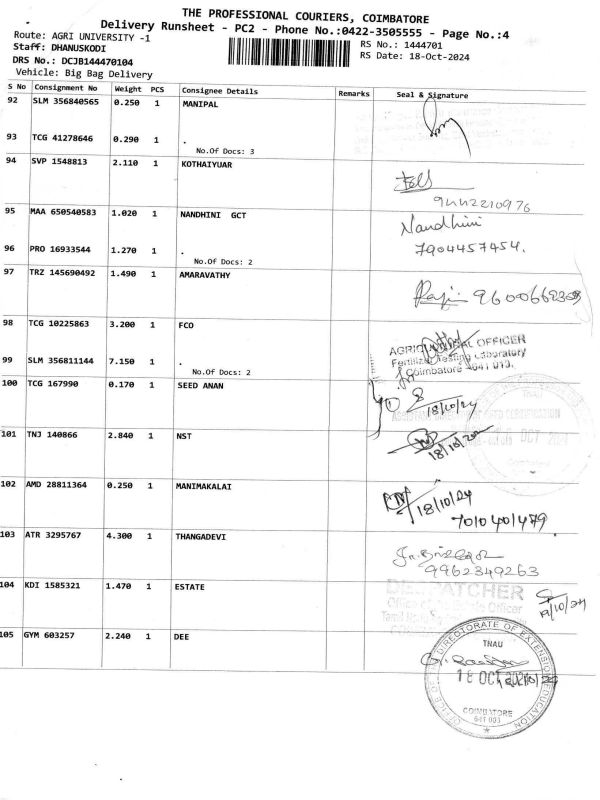 THE PROFESSIONAL COURIERS, COIMBATORE
Delivery Runsheet - PC2 - Phone No.:0422-3505555 - Page No.:4
Route: AGRI UNIVERSITY -1
RS No.: 1444701
Staff: DHANUSKODI
RS Date: 18-Oct-2024
DRS No.: DCJB144470104
Vehicle: Big Bag Delivery
S No Consignment No Weight PCS Consignee Details Remarks Seal & Signature
92 SLM 356840565 0.250 1 MANIPAL
93 TCG 41278646 0.290 1 .
No.Of Docs: 3
94 SVP 1548813 2.110 1 KOTHAIYUAR
9442210976
95 MAA 650540583 1.020 1 NANDHINI GCT Nandhini
96 PRO 16933544 1.270 1 . 7904457454.
No.Of Docs: 2
97 TRZ 145690492 1.490 1 AMARAVATHY
98 TCG 10225863 3.200 1 FCO
AGRICULTURAL OFFICER
Fertilizer Testing Laboratory
Coimbatore - 641 013.
99 SLM 356811144 7.150 1 .
No.Of Docs: 2
100 TCG 167990 0.170 1 SEED ANAN
18/10/24
101 TNJ 140866 2.840 1 NST
102 AMD 28811364 0.250 1 MANIMAKALAI
18/10/24
7010401479
103 ATR 3295767 4.300 1 THANGADEVI
9962349263
104 KDI 1585321 1.470 1 ESTATE
DESPATCHER
105 GYM 603257 2.240 1 DEE
DIRECTORATE OF EXTENSION EDUCATION
TNAU
18 OCT
COIMBATORE
641 003